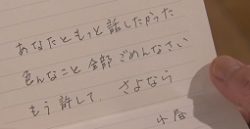 あなたともっと話したかった
色んなこと全部ごめんなさい
もう許して、さよなら